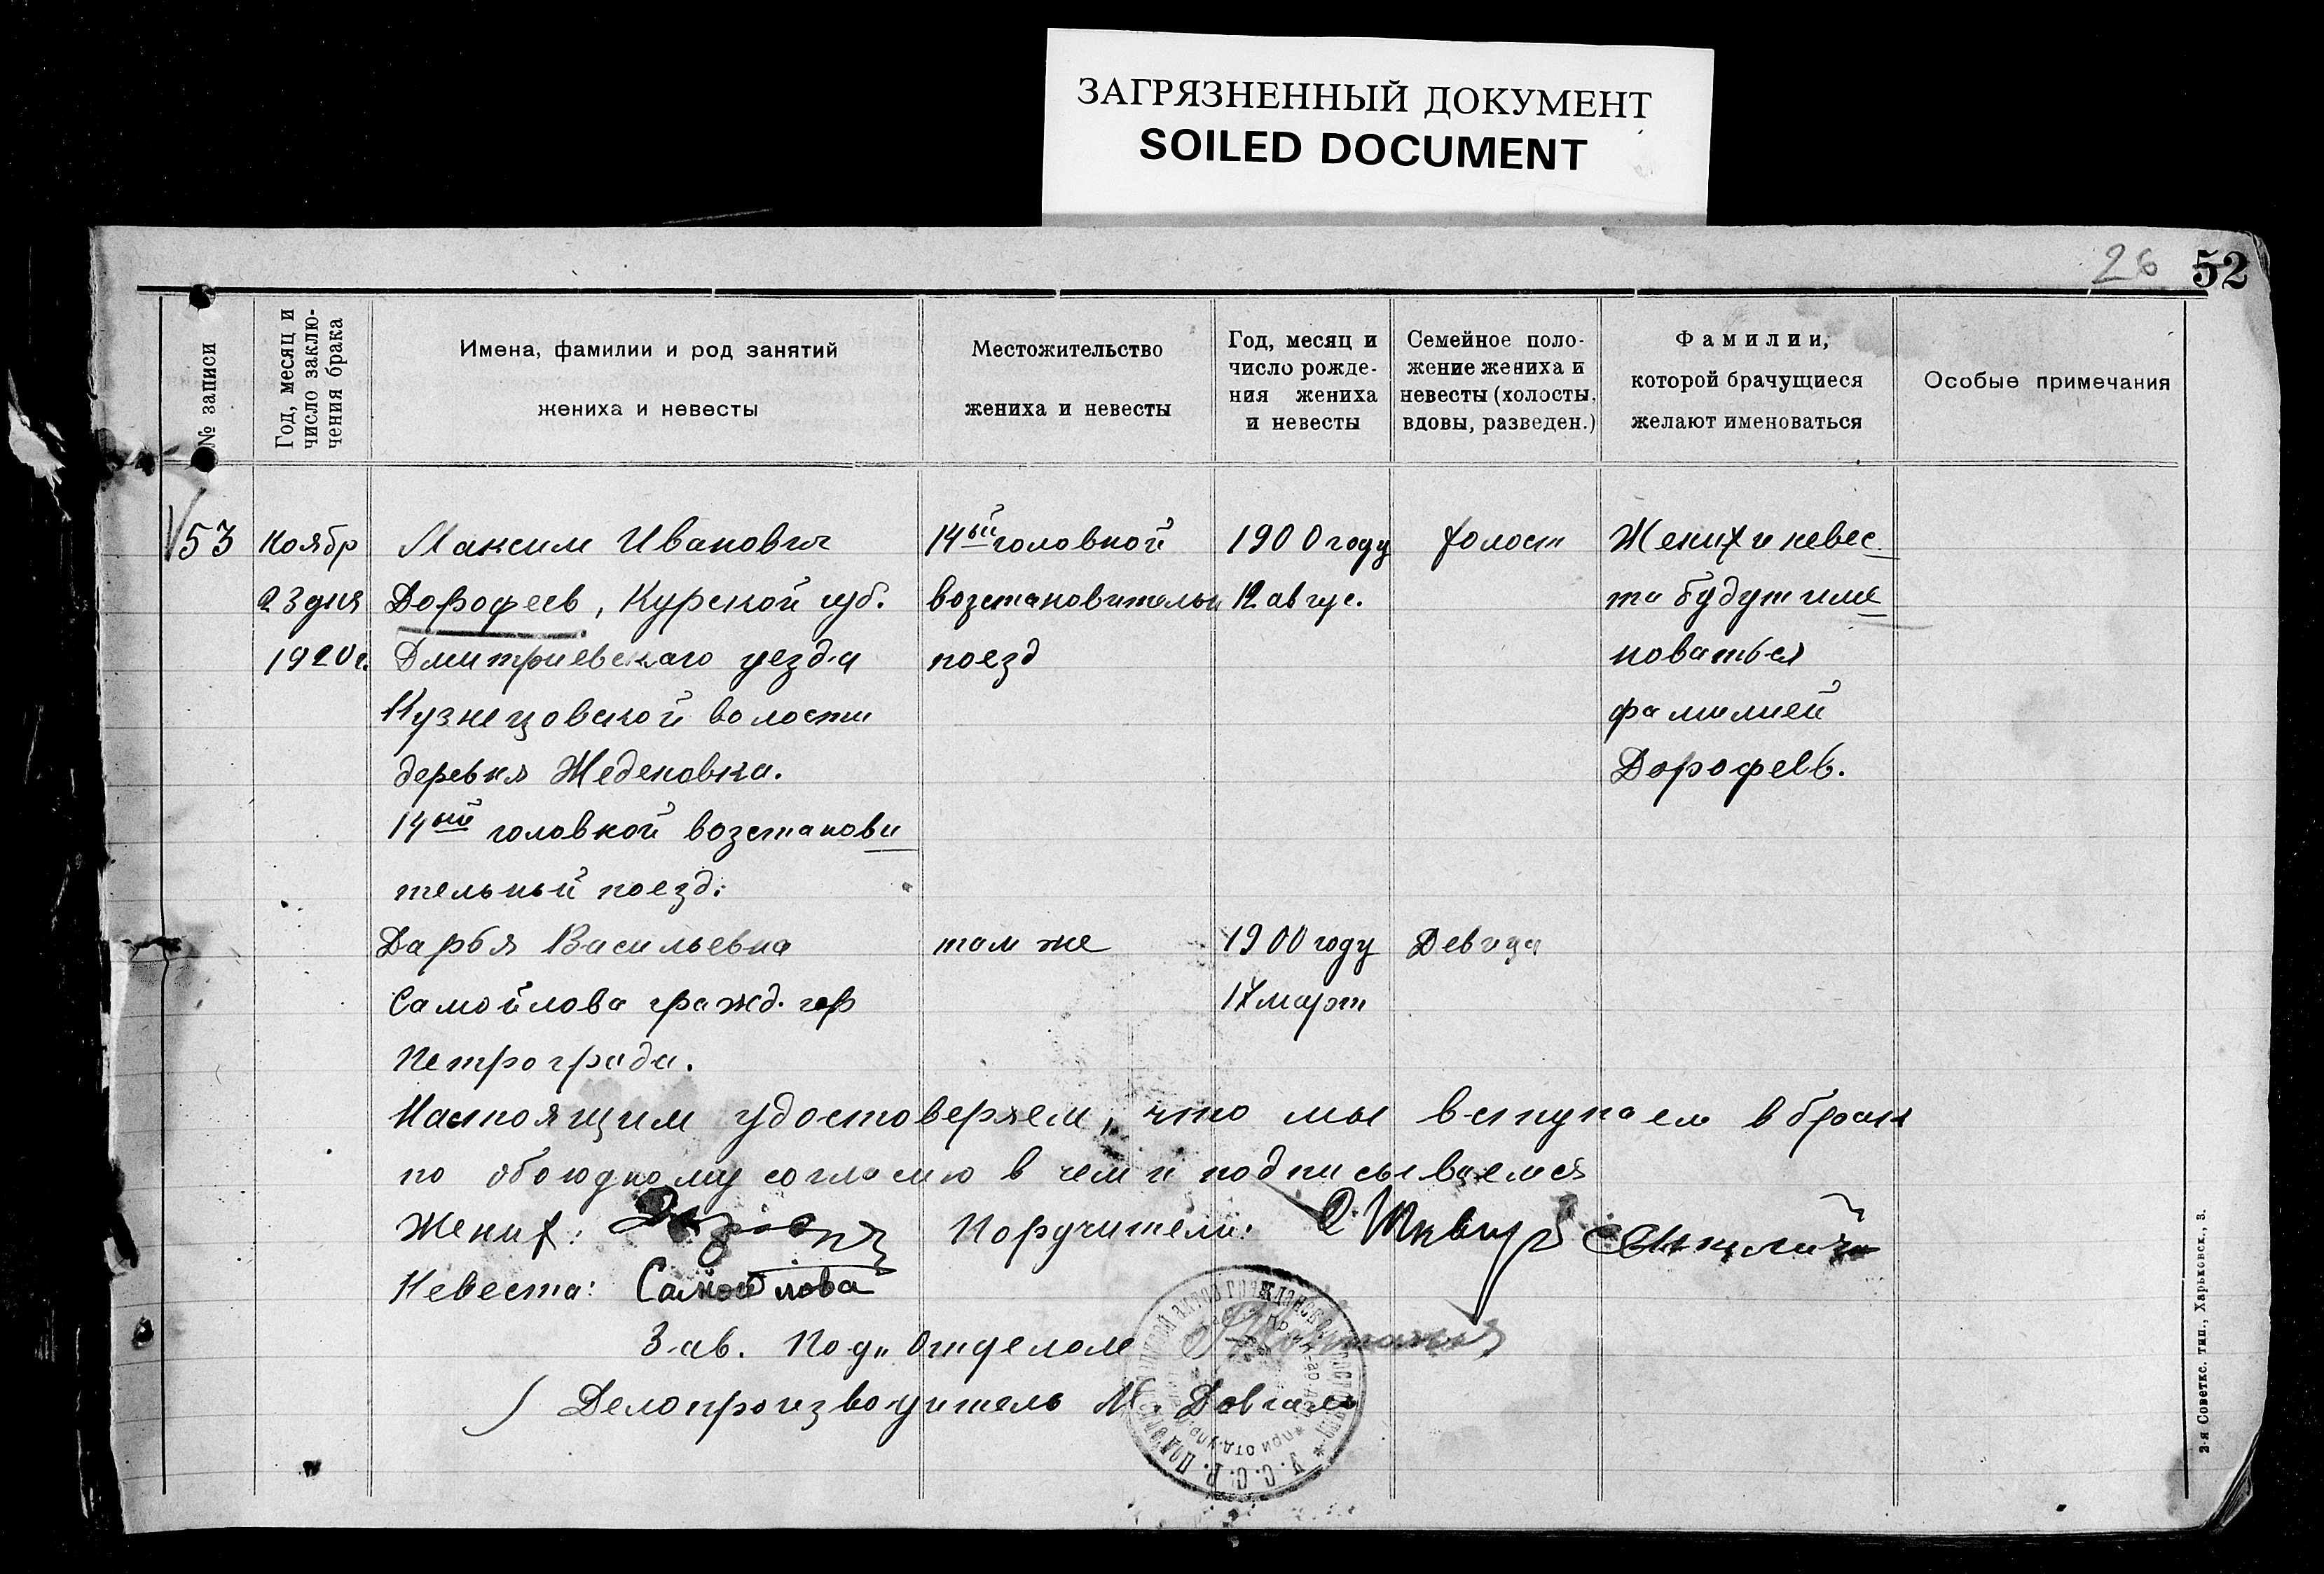 ЗАГРЯЗНЕННЫЙ ДОКУМЕНТ
SOILED DOCUMENT
26 52
№ записи
Год, месяц и
число заклю-
чения брака
Имена, фамилии и род занятий
жениха и невесты
Местожительство
жениха и невесты
Год, месяц и
число рожде-
ния жениха
и невесты
Семейное поло-
жение жениха и
невесты (холосты,
вдовы, разведен.)
Фамилии,
которой брачущиеся
желают именоваться
Особые примечания
53
Ноябр
23 дня
1920 г.
Максим Иванович
Дорофеев, Курской губ.
Дмитриевскаго уезда
Кузнецовской волости
деревня Жеденовка.
14ый головной возстанови
тельный поезд:
14ый головной
возстановительн
поезд
1900 году
12 авгус.
холост
Жених и невес
та будут име
новаться
фамилией
Дорофеев.
Дарья Васильевна
Самойлова гражд. гор
Петрограда.
там же
1900 году
17 март
Девица
Настоящим удостоверяем, что мы вступаем в брак
по обоюдному согласию в чем и подписываемся
Жених: Поручители:
Невеста: Самойлова
Зав. Под. Отделом
Делопроизводитель М. Довгаль
У.С.С.Р.
2-я Советск. тип., Харьковск., 3.